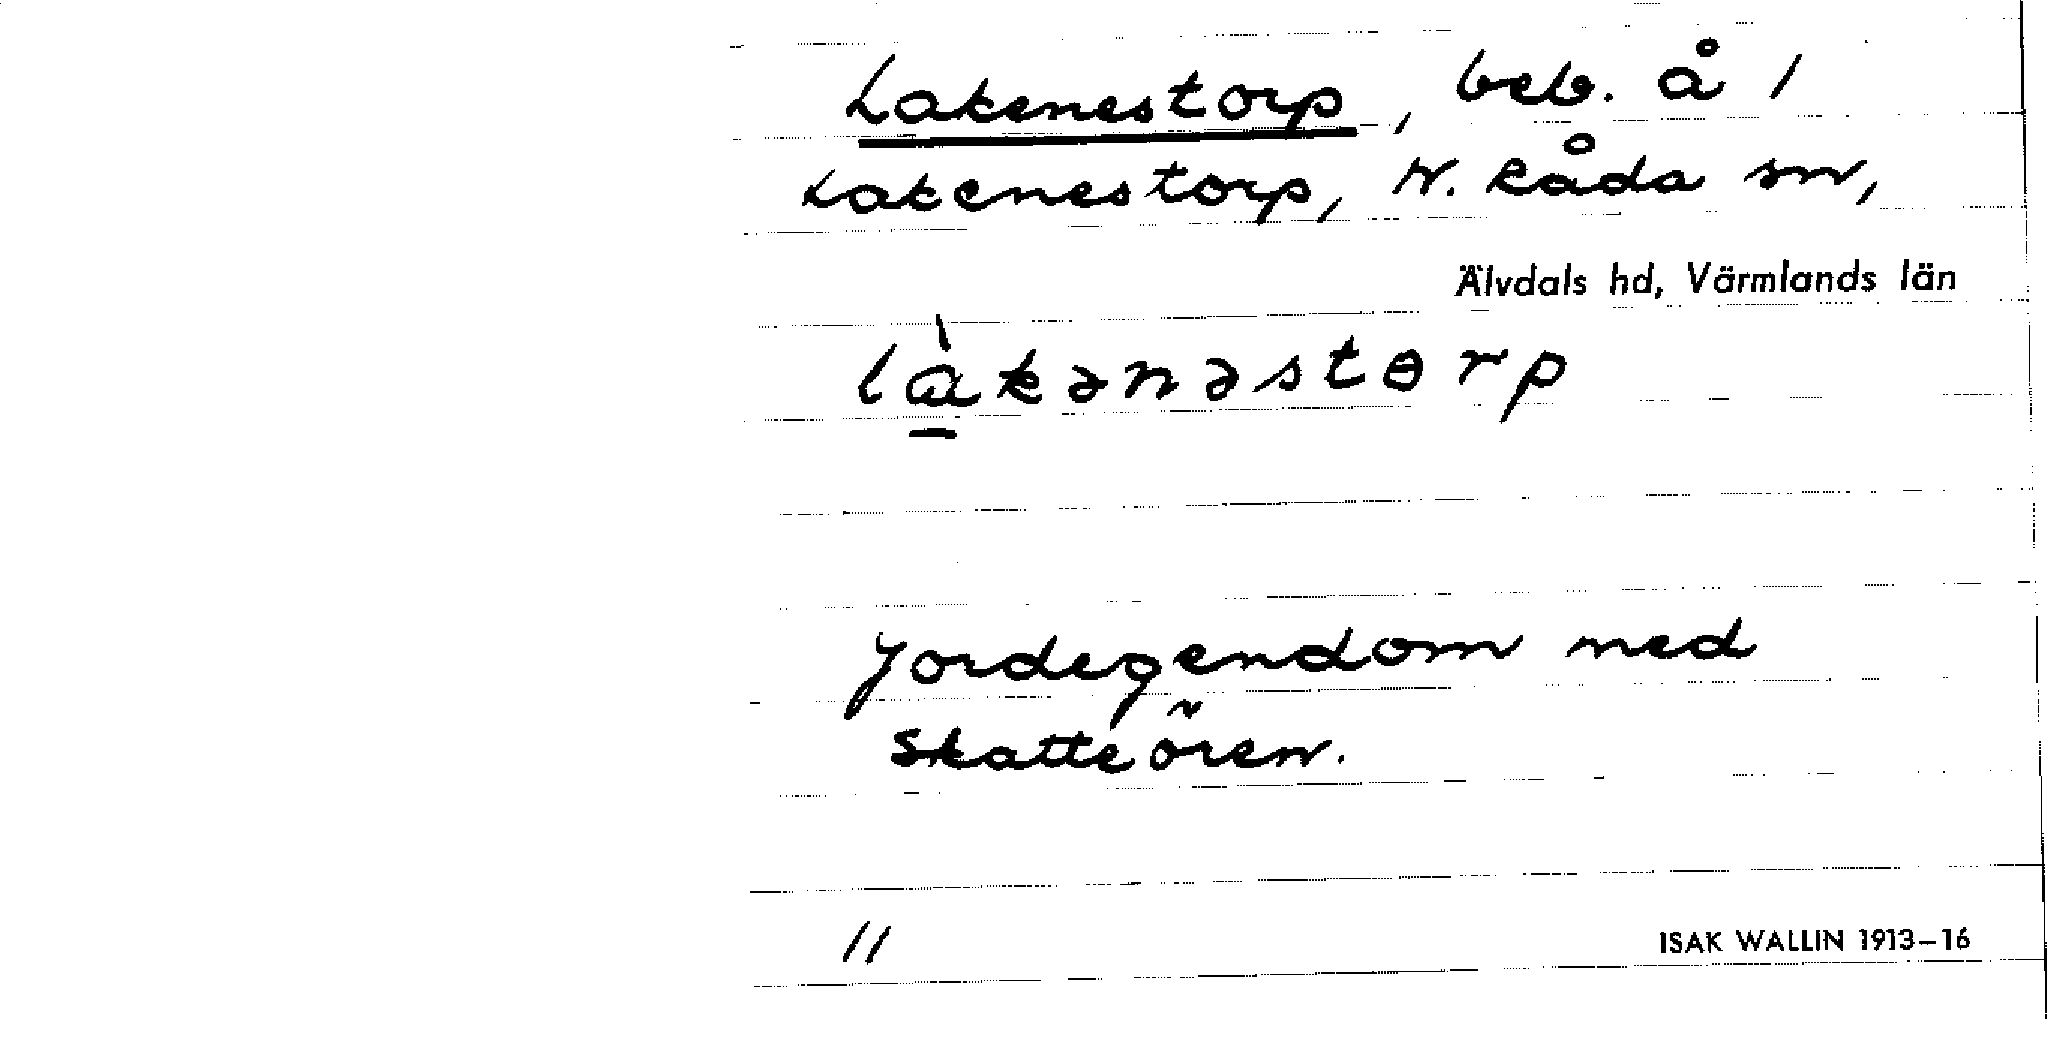 Lakenestorp, beb. å 1
Lakenestorp, N. Råda sn,
Älvdals hd, Värmlands län
là̱kənəstɵrp
Jordegendom med
skatteören.
11
ISAK WALLIN 1913–16